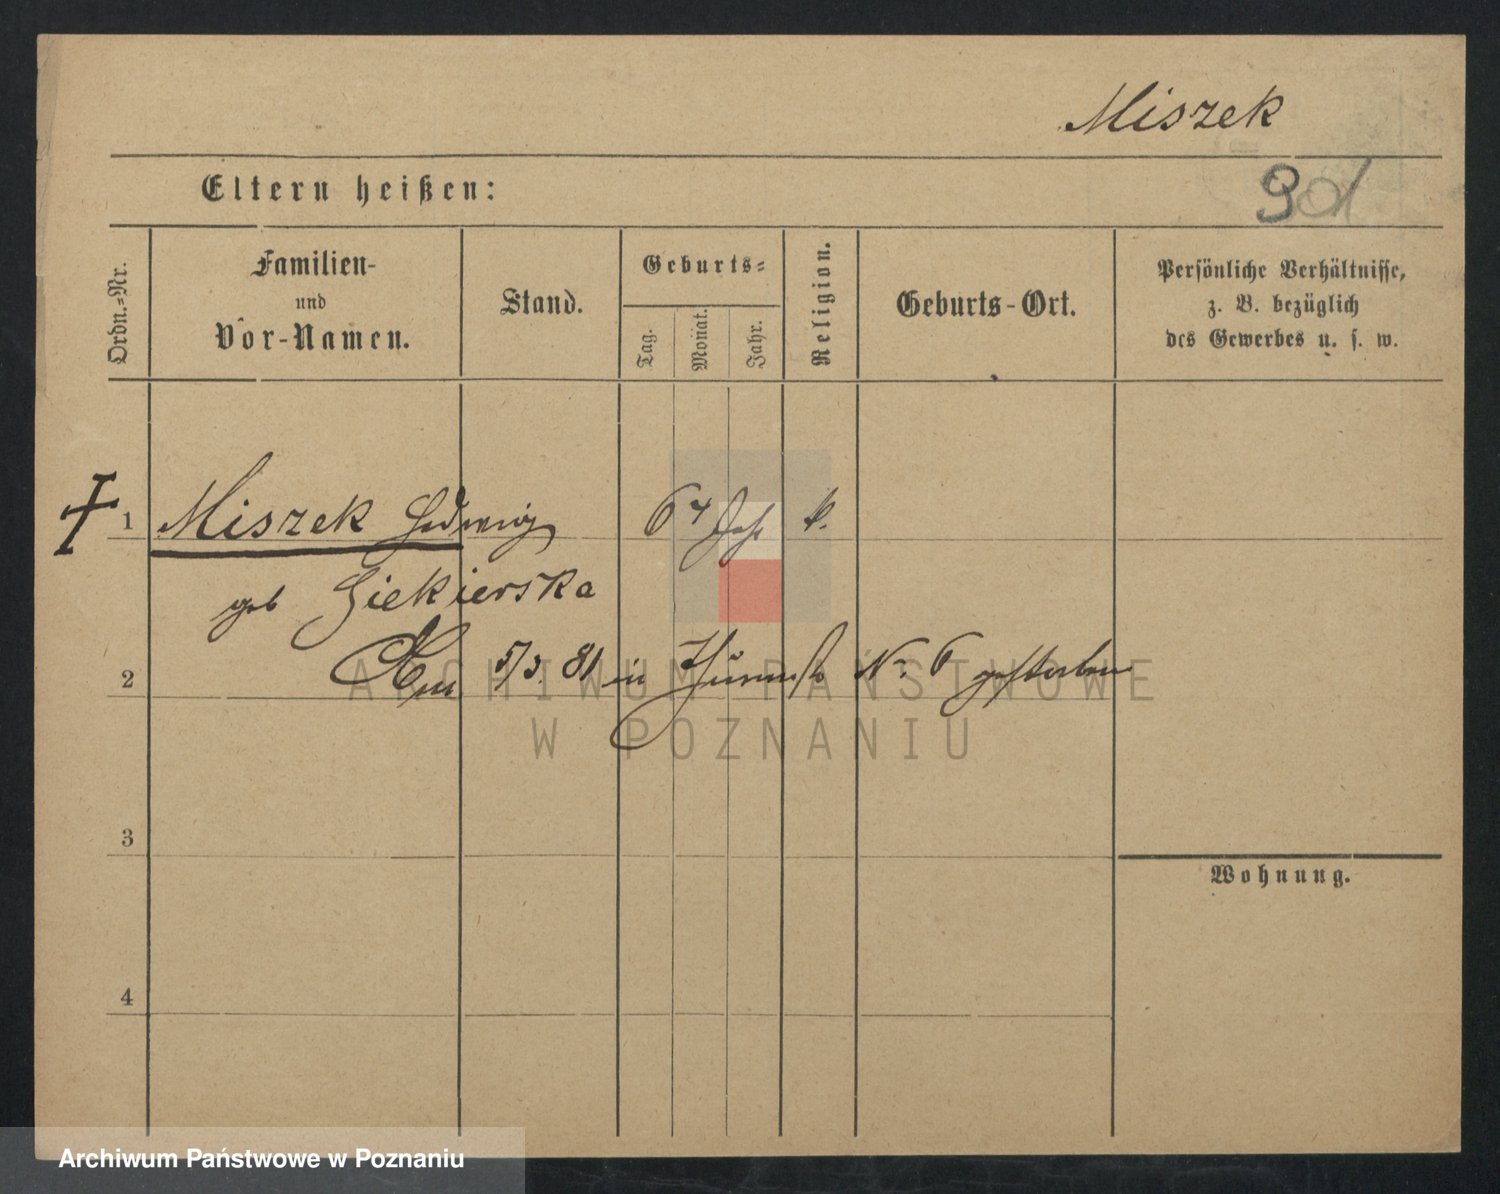 Miszek
Eltern heißen:
901
Ordn.=Nr.
Familien-
und
Vor-Namen.
Stand.
Geburts=
Tag.
Monat.
Jahr.
Religion.
Geburts-Ort.
Persönliche Verhältnisse,
z. B. bezüglich
des Gewerbes u. s. w.
1 Miszek Hedwig 64 Jahr k.
geb Siekierska
2 Am 5/3. 81 in No. 6 gestorben
ARCHIWUM PAŃSTWOWE
W POZNANIU
3
Wohnung.
4
Archiwum Państwowe w Poznaniu